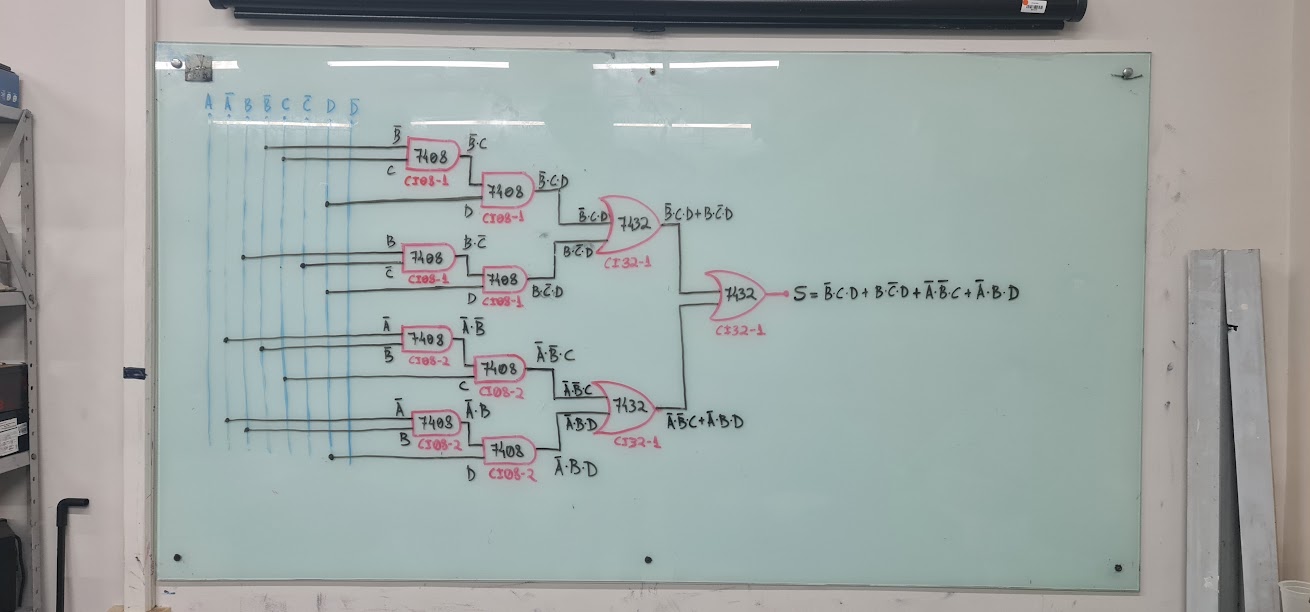 A Ā B B̄ C C̄ D D̄
B̄
C
7408
CI08-1
B̄·C
D
7408
CI08-1
B̄·C·D
B
C̄
7408
CI08-1
B·C̄
D
7408
CI08-1
B·C̄·D
B̄·C·D
B·C̄·D
7432
CI32-1
B̄·C·D+B·C̄·D
Ā
B̄
7408
CI08-2
Ā·B̄
C
7408
CI08-2
Ā·B̄·C
Ā
B
7408
CI08-2
Ā·B
D
7408
CI08-2
Ā·B·D
Ā·B̄·C
Ā·B·D
7432
CI32-1
Ā·B̄·C+Ā·B·D
7432
CI32-1
S = B̄·C·D + B·C̄·D + Ā·B̄·C + Ā·B·D